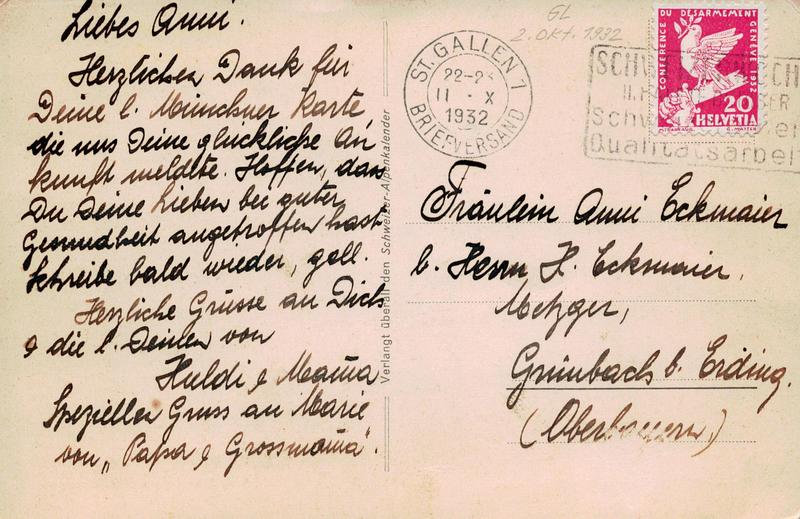 Liebes Anni.
Herzlichen Dank für
Deine l. Münchner Karte
die uns Deine glückliche An-
kunft meldete. Hoffen, dass
Du Deine Lieben bei guter
Gesundheit angetroffen hast.
Schreibe bald wieder, gell.
Herzliche Grüsse an Dich
& die l. Deinen von
Huldi & Mama
Speziellen Gruss an Marie
von „Papa & Grossmama".
Verlangt überall den Schweizer-Alpenkalender
GL
2. OKT. 1932
ST. GALLEN 1
22-2
11 · X
1932
BRIEFVERSAND
CONFERENCE DU DÉSARMEMENT GENÈVE 1932
20
HELVETIA
SCHW
II.
Schw
Qualitätsarbeit
Fräulein Anni Eckmaier
b. Herrn H. Eckmaier,
Metzger,
Grünbach b. Erding.
(Oberbayern.)